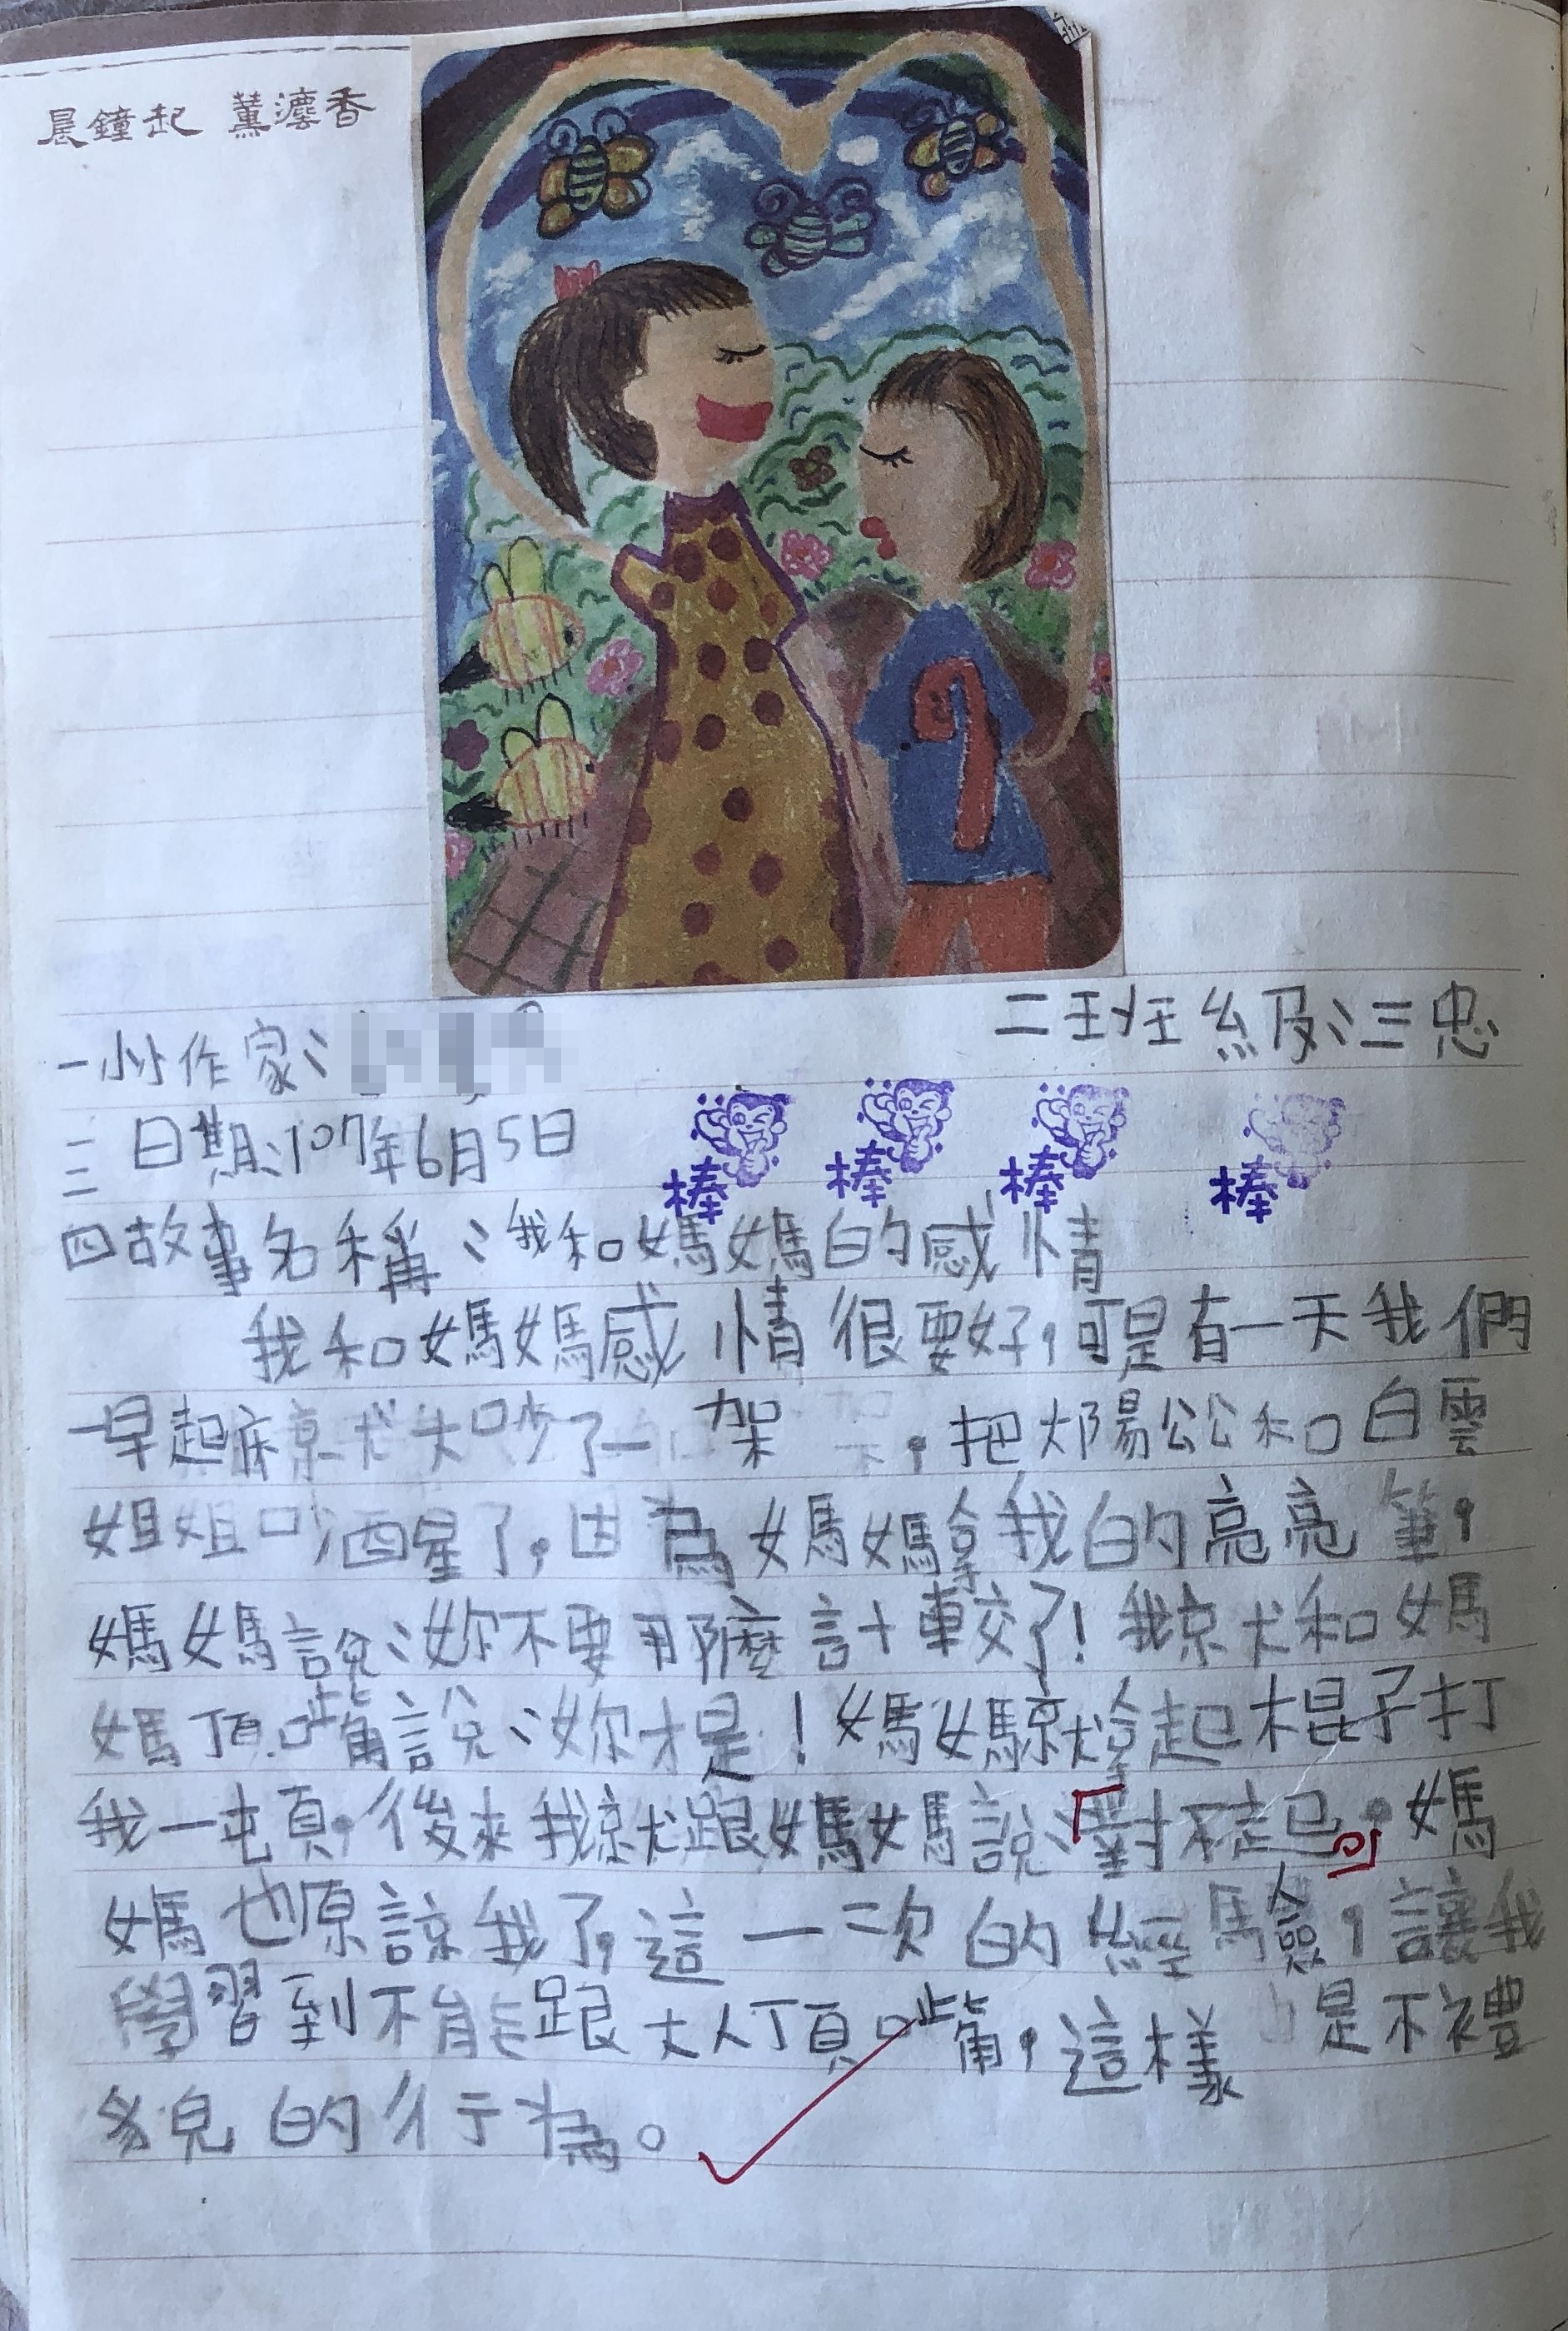 晨鐘起 薰瀍香
一小小作家：
二班級：三忠
三日期：107年6月5日
棒 棒 棒 棒
四故事名稱：我和媽媽的感情
我和媽媽感情很要好，可是有一天我們
一早起床就大吵了一架，把太陽公公和白雲
姐姐吵醒了，因為媽媽拿我的亮亮筆，
媽媽說：妳不要那麼計較了！我就和媽
媽頂嘴說：妳才是！媽媽就拿起棍子打
我一頓，後來我就跟媽媽說：「對不起。」媽
媽也原諒我了，這一次的經驗，讓我
學習到不能跟大人頂嘴，這樣是不禮
貌的行為。